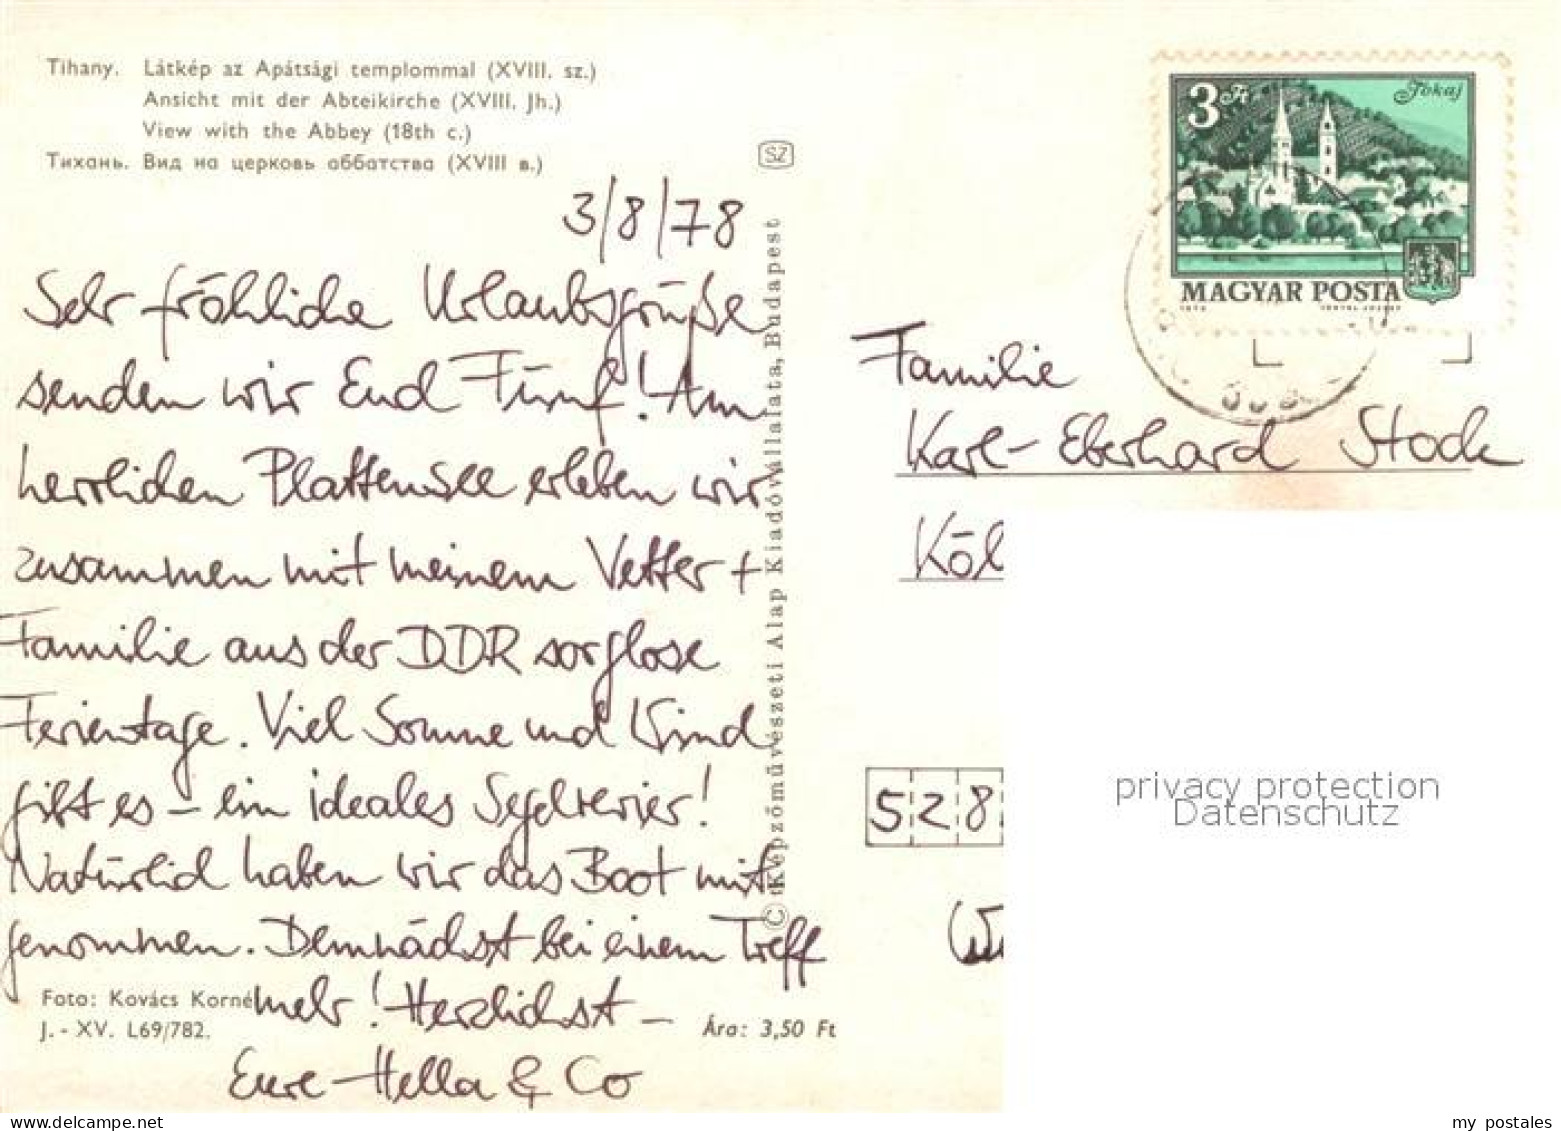 Tihany. Látkép az Apátsági templommal (XVIII. sz.)
Ansicht mit der Abteikirche (XVIII. Jh.)
View with the Abbey (18th c.)
Тихань. Вид на церковь аббатства (XVIII в.)
SZ
3/8/78
Sehr fröhliche Urlaubsgrüße
senden wir Euch Fünf! Am
herrlichen Plattensee erleben wir
zusammen mit meinem Vetter +
Familie aus der DDR sorglose
Ferientage. Viel Sonne und Wind
gibt es – ein ideales Segelrevier!
Natürlich haben wir das Boot mit
genommen. Demnächst bei einem Treff
mehr! Herzlichst –
Eure Hella & Co
Foto: Kovács Korné
J. - XV. L69/782.
Ára: 3,50 Ft
© Képzőművészeti Alap Kiadóvállalata, Budapest
3 Ft
Tokaj
MAGYAR POSTA
Familie
Karl-Eberhard Stock
Köl
528
privacy protection
Datenschutz
www.delcampe.net
my postales